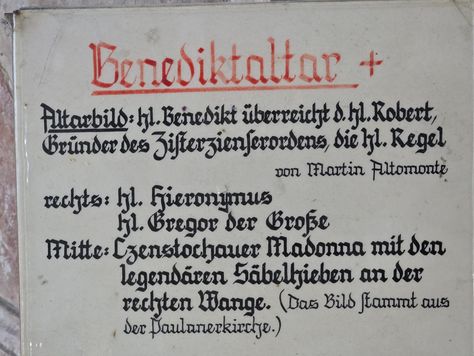 Benediktaltar +
Altarbild: hl. Benedikt überreicht d. hl. Robert,
Gründer des Zisterzienserordens, die hl. Regel
von Martin Altomonte
rechts: hl. Hieronymus
hl. Gregor der Große
Mitte: Czenstochauer Madonna mit den
legendären Säbelhieben an der
rechten Wange. (Das Bild stammt aus
der Paulanerkirche.)